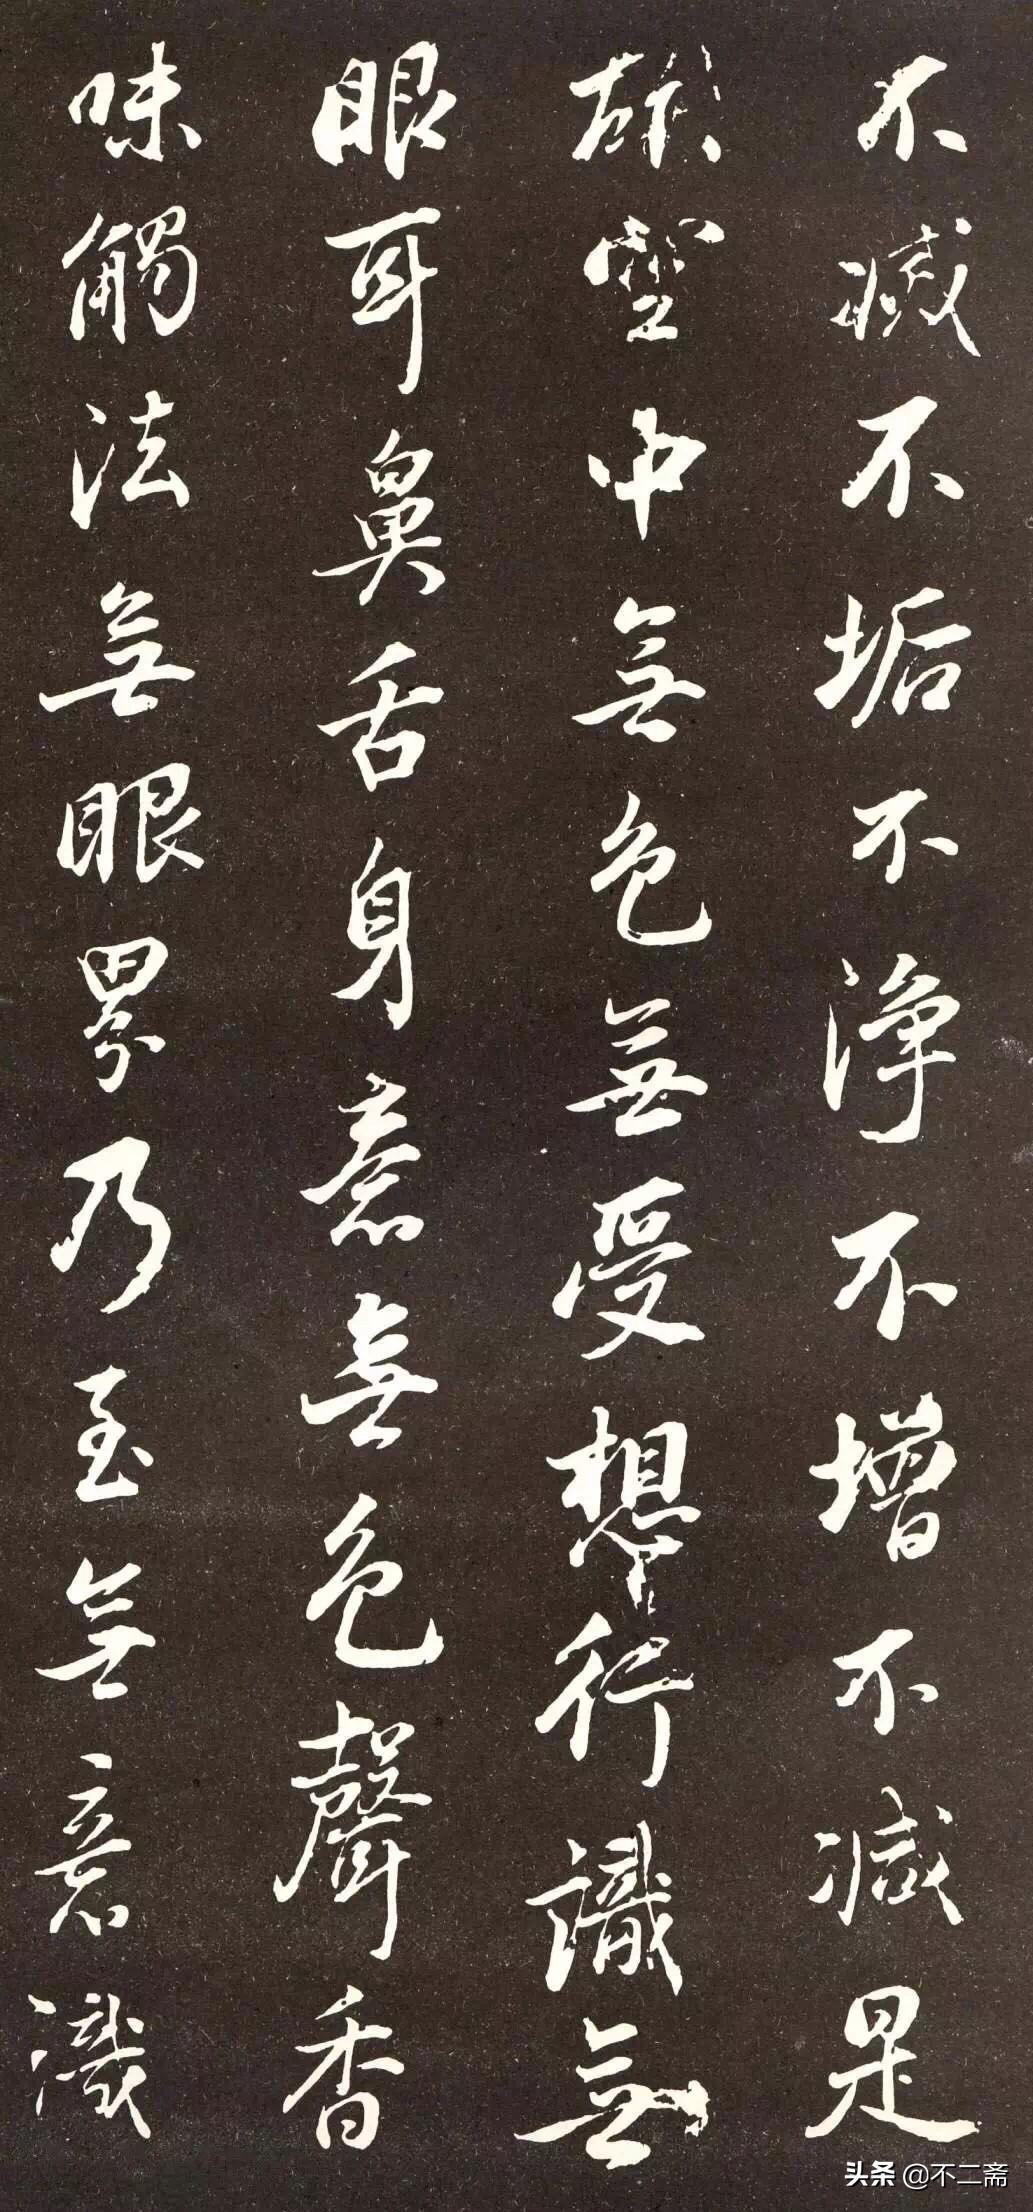 不減不垢不淨不增不減是
故空中無色無受想行識無
眼耳鼻舌身意無色聲香
味觸法無眼界乃至無意識
头条 @不二斋